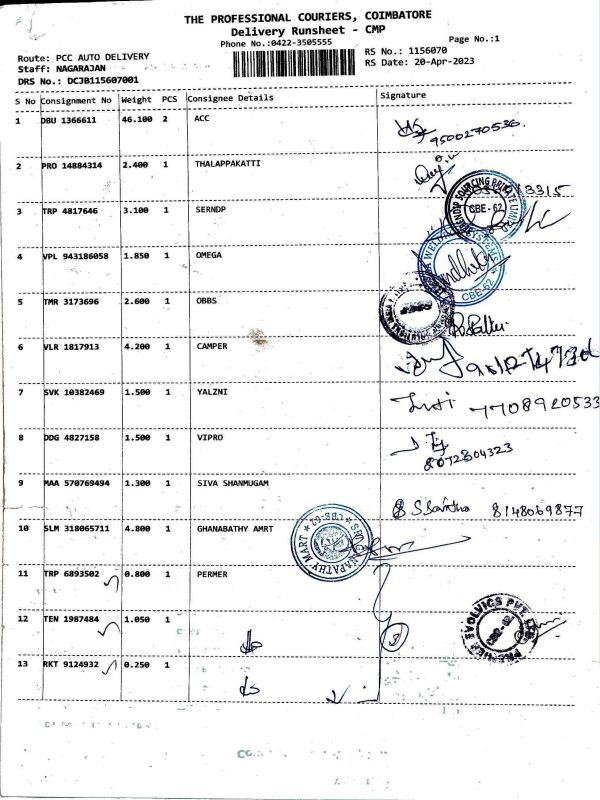 THE PROFESSIONAL COURIERS, COIMBATORE
Delivery Runsheet - CMP
Phone No.:0422-3505555
Page No.:1
Route: PCC AUTO DELIVERY
RS No.: 1156070
Staff: NAGARAJAN
RS Date: 20-Apr-2023
DRS No.: DCJB115607001
S No Consignment No Weight PCS Consignee Details Signature
1 DBU 1366611 46.100 2 ACC
9500270536.
2 PRO 14884314 2.400 1 THALLAPAKATTI
3 TRP 4817646 3.100 1 SERNDP
CBE-62
4 VPL 943186058 1.850 1 OMEGA
CBE-62
5 TMR 3173696 2.600 1 OBBS
6 VLR 1817913 4.200 1 CAMPER
7 SVK 10382469 1.500 1 YALZNI
7708920533
8 DDG 4827158 1.500 1 VIPRO
8072804323
9 MAA 570769494 1.300 1 SIVA SHANMUGAM
8148069877
10 SLM 318065711 4.800 1 GHANABATHY AMRT
SRI GANAPATHY MART CBE-62
11 TRP 6893502 0.800 1 PERMER
12 TEN 1987484 1.050 1
3
PREMIER EVOLVICS PVT. LTD.
13 RKT 9124932 0.250 1